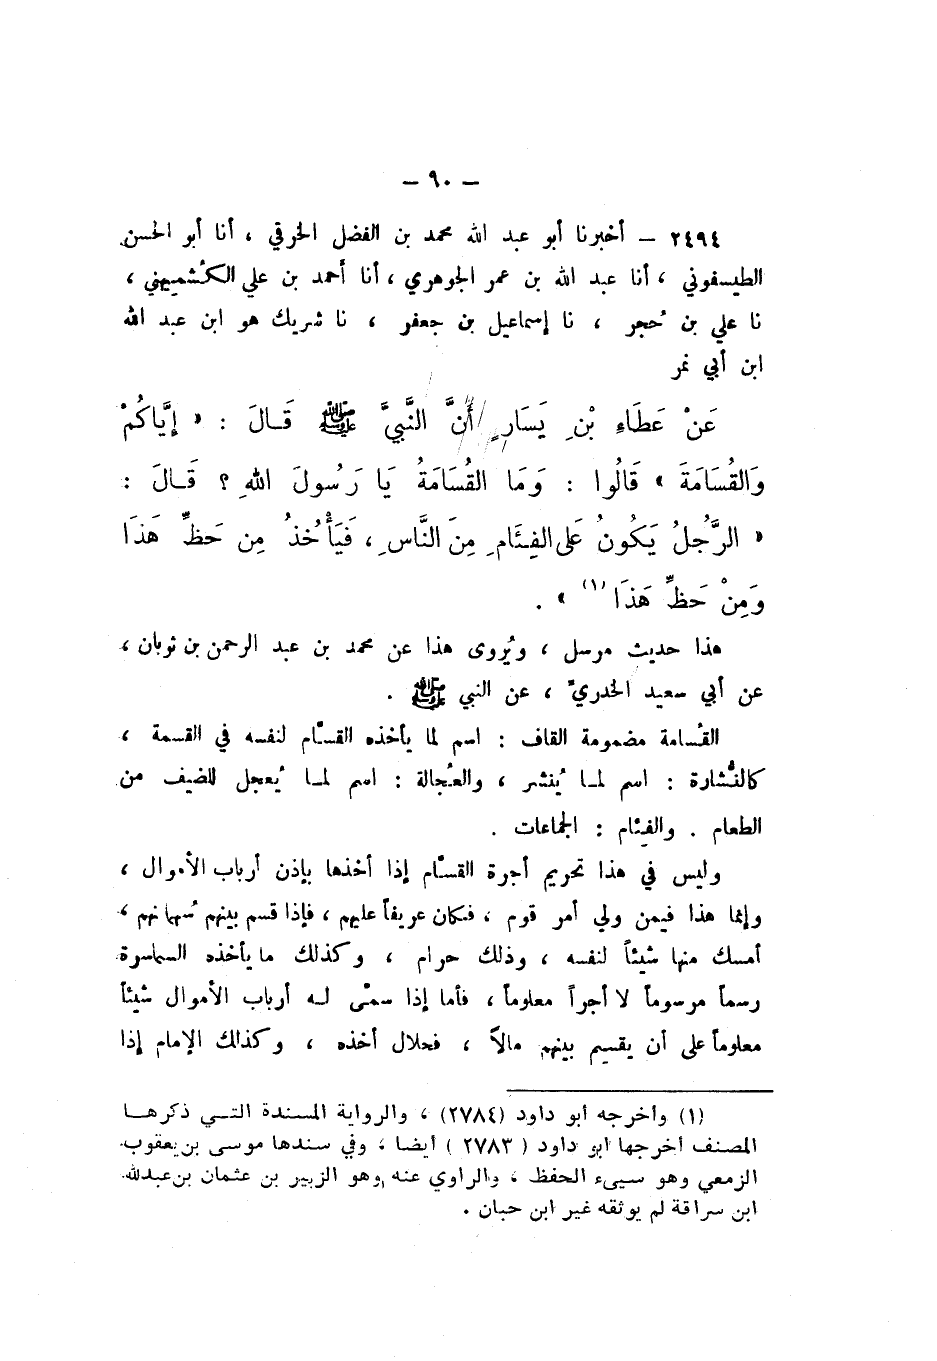 — ٩٠ —
٢٤٩٤ — أخبرنا أبو عبد الله محمد بن الفضل الخرقي ، أنا أبو الحسن
الطيسفوني ، أنا عبد الله بن عمر الجوهري ، أنا أحمد بن علي الكُشميهني ،
نا علي بن حُجر ، نا إسماعيل بن جعفر ، نا شريك هو ابن عبد الله
ابن أبي نمر
عَنْ عَطَاءِ بْنِ يَسَارٍ أَنَّ النَّبِيَّ ﷺ قَالَ : « إِيَّاكُمْ
وَالقُسَامَةَ » قَالُوا : وَمَا القُسَامَةُ يَا رَسُولَ اللهِ ؟ قَالَ :
« الرَّجُلُ يَكُونُ عَلى الفِئَامِ مِنَ النَّاسِ ، فَيَأْخُذُ مِن حَظِّ هَذَا
وَمِنْ حَظِّ هَذَا (١) » .
هذا حديث مرسل ، ويُروى هذا عن محمد بن عبد الرحمن بن ثوبان ،
عن أبي سعيد الخدريّ ، عن النبي ﷺ .
القُسامة مضمومة القاف : اسم لما يأخذه القسّام لنفسه في القسمة ،
كالنُّشارة : اسم لما يُنشر ، والعُجالة : اسم لما يُعجل للضيف من
الطعام . والفِئام : الجماعات .
وليس في هذا تحريم أجرة القسّام إذا أخذها بإذن أرباب الأموال ،
وإنما هذا فيمن ولي أمر قوم ، فكان عريفاً عليهم ، فإذا قسم بينهم سُهمانهم ،
أمسك منها شيئاً لنفسه ، وذلك حرام ، وكذلك ما يأخذه السماسرة
رسماً مرسوماً لا أجراً معلوماً ، فأما إذا سمّى له أرباب الأموال شيئاً
معلوماً على أن يقسم بينهم مالاً ، فحلال أخذه ، وكذلك الإمام إذا
(١) وأخرجه أبو داود (٢٧٨٤) ، والرواية المسندة التي ذكرها
المصنف أخرجها أبو داود ( ٢٧٨٣ ) أيضا ، وفي سندها موسى بن يعقوب
الزمعي وهو سيىء الحفظ ، والراوي عنه وهو الزبير بن عثمان بن عبدالله
ابن سراقة لم يوثقه غير ابن حبان .